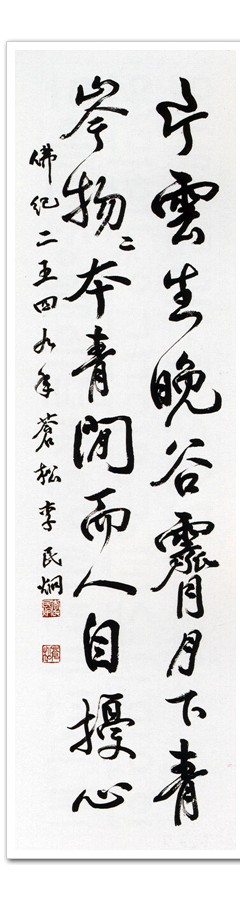 片雲生晚谷霽月下青
岑物〻本青閒而人自擾心
佛紀二五四九年 蒼松 李民炯